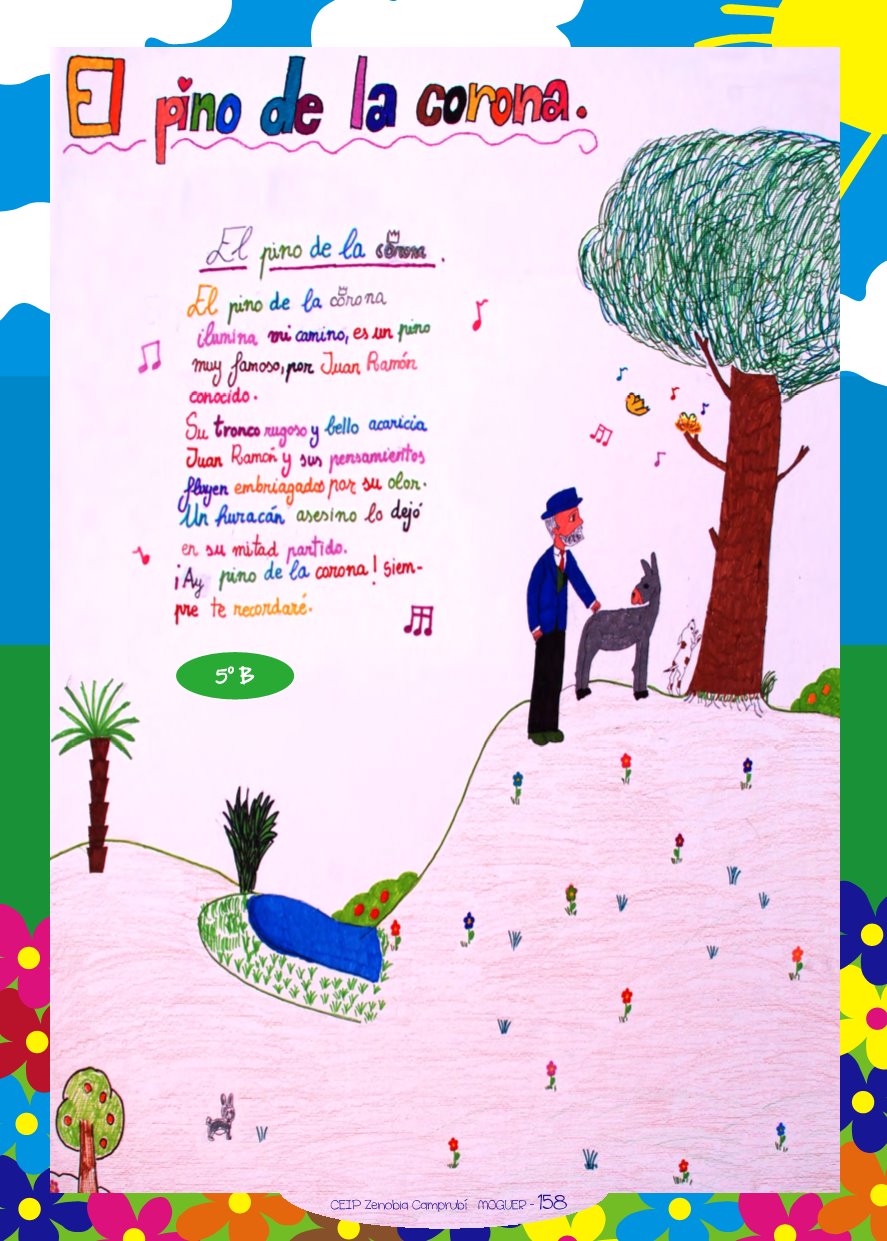 El pino de la corona.
El pino de la corona.
El pino de la corona
ilumina mi camino, es un pino
muy famoso, por Juan Ramón
conocido.
Su tronco rugoso y bello acaricia
Juan Ramón y sus pensamientos
fluyen embriagados por su olor.
Un huracán asesino lo dejó
en su mitad partido.
¡Ay pino de la corona! Siem-
pre te recordaré.
5º B
CEIP Zenobia Camprubí MOGUER - 158